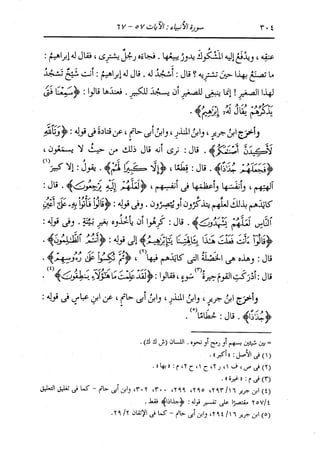 ٣٠٤ سورة الأنبياء : الآيات ٥٧ - ٦٧
عنقِه ، ويدفعُ إليه المشكوكَ يدورُ يبيعُها . فجاءَه رجلٌ يشترِى ، فقال له إبراهيمُ :
ما تصنعُ بهذا حينَ تشترِيه ؟ قال : أسْجُدُ له . قال له إبراهيمُ : أنت شيْخٌ تسْجُدُ
لهذا الصغيرِ ! إنما ينبغى للصغيرِ أن يسجدَ للكبيرِ . فعندَها قالوا : ﴿ سَمِعْنَا فَتًى
يَذْكُرُهُمْ يُقَالُ لَهُۥٓ إِبْرَٰهِيمُ ﴾ .
وأخرَج ابنُ جريرٍ ، وابنُ المنذرِ ، وابنُ أبى حاتمٍ ، عن قتادةَ فى قولِه : ﴿ وَتَٱللَّهِ
لَأَكِيدَنَّ أَصْنَٰمَكُم ﴾ . قال : نرَى أنه قال ذلك من حيثُ لا يسمَعون ،
﴿ فَجَعَلَهُمْ جُذَٰذًا ﴾ . قال : قِطَعًا ، ﴿ إِلَّا كَبِيرًا لَّهُمْ ﴾ . يقولُ : إلا كبيرَ (١)
آلهتِهم ، وأنفَسَها وأعظمَها فى أنفسِهم ، ﴿ لَعَلَّهُمْ إِلَيْهِ يَرْجِعُونَ ﴾ . قال :
كايَدَهم بذلك لعلهم يتذكَّرون أو يُبْصِرون . وفى قولِه : ﴿ قَالُوا۟ فَأْتُوا۟ بِهِۦ عَلَىٰٓ أَعْيُنِ
ٱلنَّاسِ لَعَلَّهُمْ يَشْهَدُونَ ﴾ . قال : كرِهوا أن يأخُذوه بغيرِ بيِّنةٍ . وفى قولِه :
﴿ قَالُوٓا۟ ءَأَنتَ فَعَلْتَ هَٰذَا بِـَٔالِهَتِنَا يَٰٓإِبْرَٰهِيمُ ﴾ إلى قولِه : ﴿ أَنتُمُ ٱلظَّٰلِمُونَ ﴾ .
قال : وهذه هى الخَصْلةُ التى كايَدَهم فيها (٢) ، ﴿ ثُمَّ نُكِسُوا۟ عَلَىٰ رُءُوسِهِمْ ﴾ .
قال : أدْرَكتِ القومَ حيرةُ (٣) سوءٍ ، فقالوا : ﴿ لَقَدْ عَلِمْتَ مَا هَٰٓؤُلَآءِ يَنطِقُونَ ﴾ (٤) .
وأخرَج ابنُ جريرٍ ، وابنُ المنذرِ ، وابنُ أبى حاتمٍ ، عن ابنِ عباسٍ فى قولِه :
﴿ جُذَٰذًا ﴾ . قال : حُطَامًا (٥) .
= بين شيئين بسهم أو رمح أو نحوه . اللسان (ش ك ك) .
(١) فى الأصل : « أكبر » .
(٢) فى ص ، ف ١ ، ر ٢ ، ح ١ ، ح ٢ ، م : « بها » .
(٣) فى م : « غيرة » .
(٤) ابن جرير ١٦/ ٢٩٣، ٢٩٥، ٢٩٩، ٣٠٠، ٣٠٢ ، وابن أبى حاتم - كما فى تغليق التعليق
٢٥٧/٤ مقتصرًا على تفسير قوله : ﴿ جذاذا ﴾ فقط .
(٥) ابن جرير ١٦/ ٢٩٤، وابن أبى حاتم - كما فى الإتقان ٢٩/٢ .